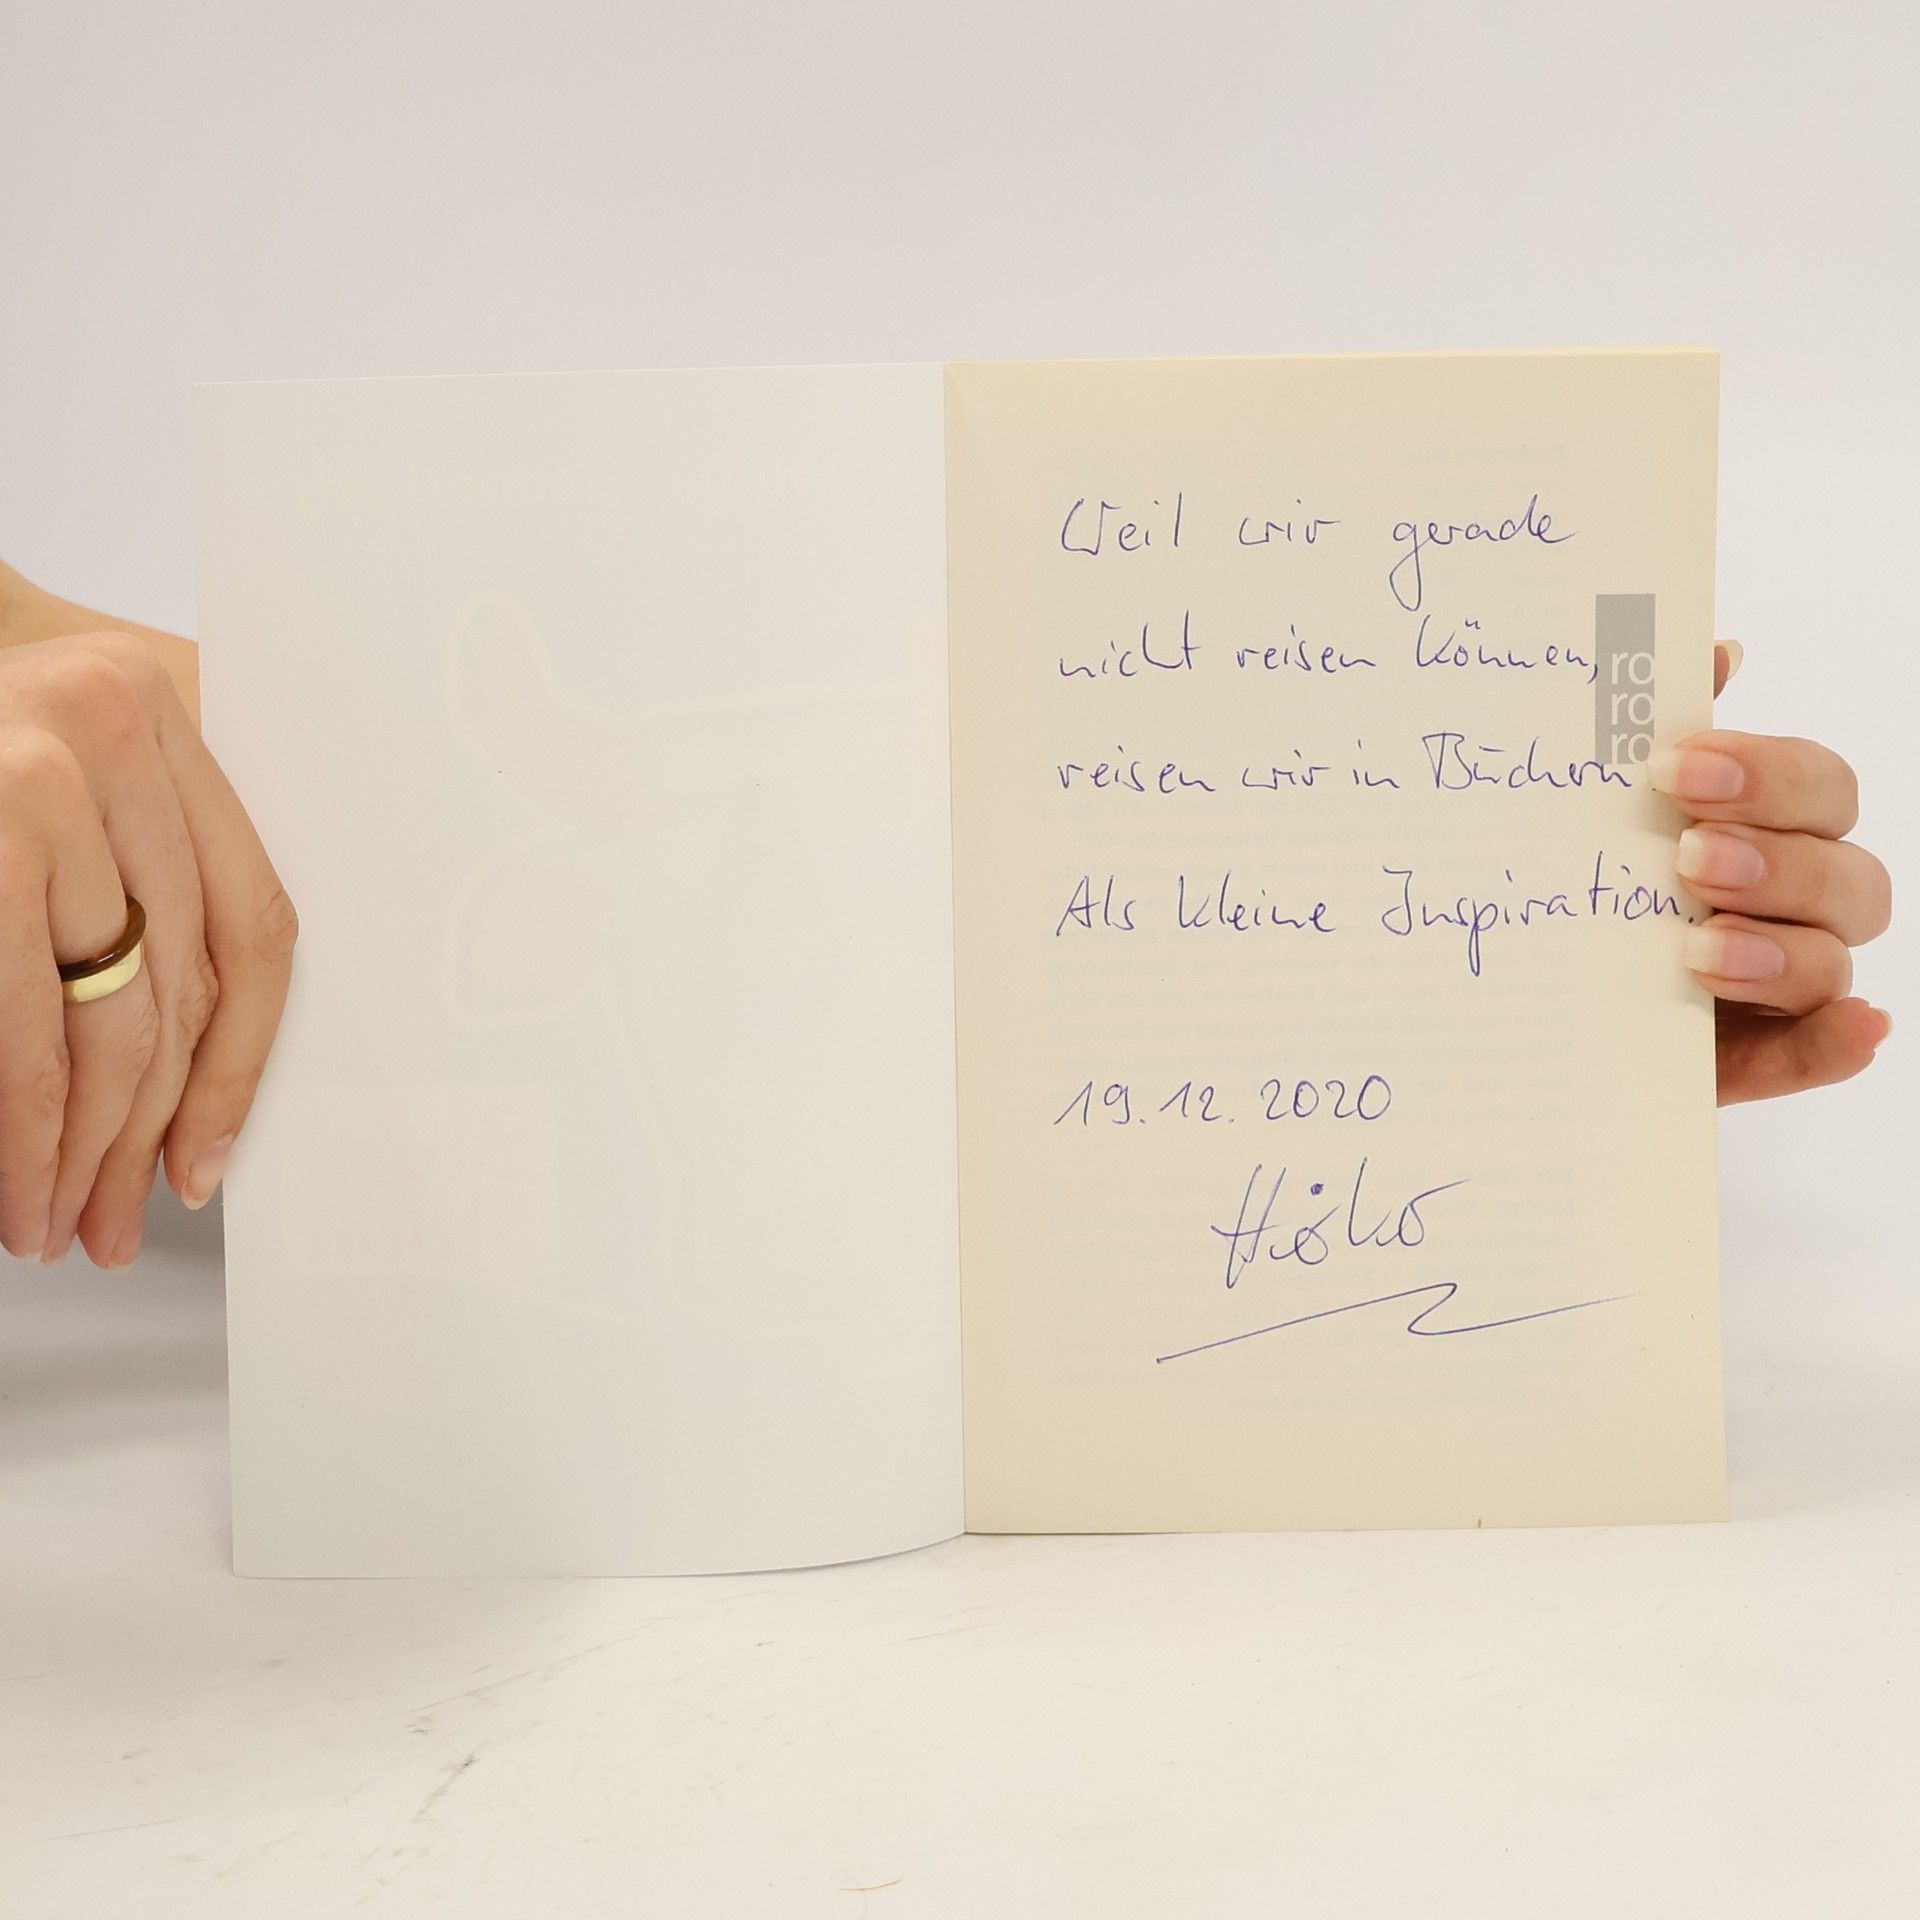 Weil wir gerade
nicht reisen können,
reisen wir in Büchern
Als kleine Inspiration.
19.12.2020
ro
ro
ro